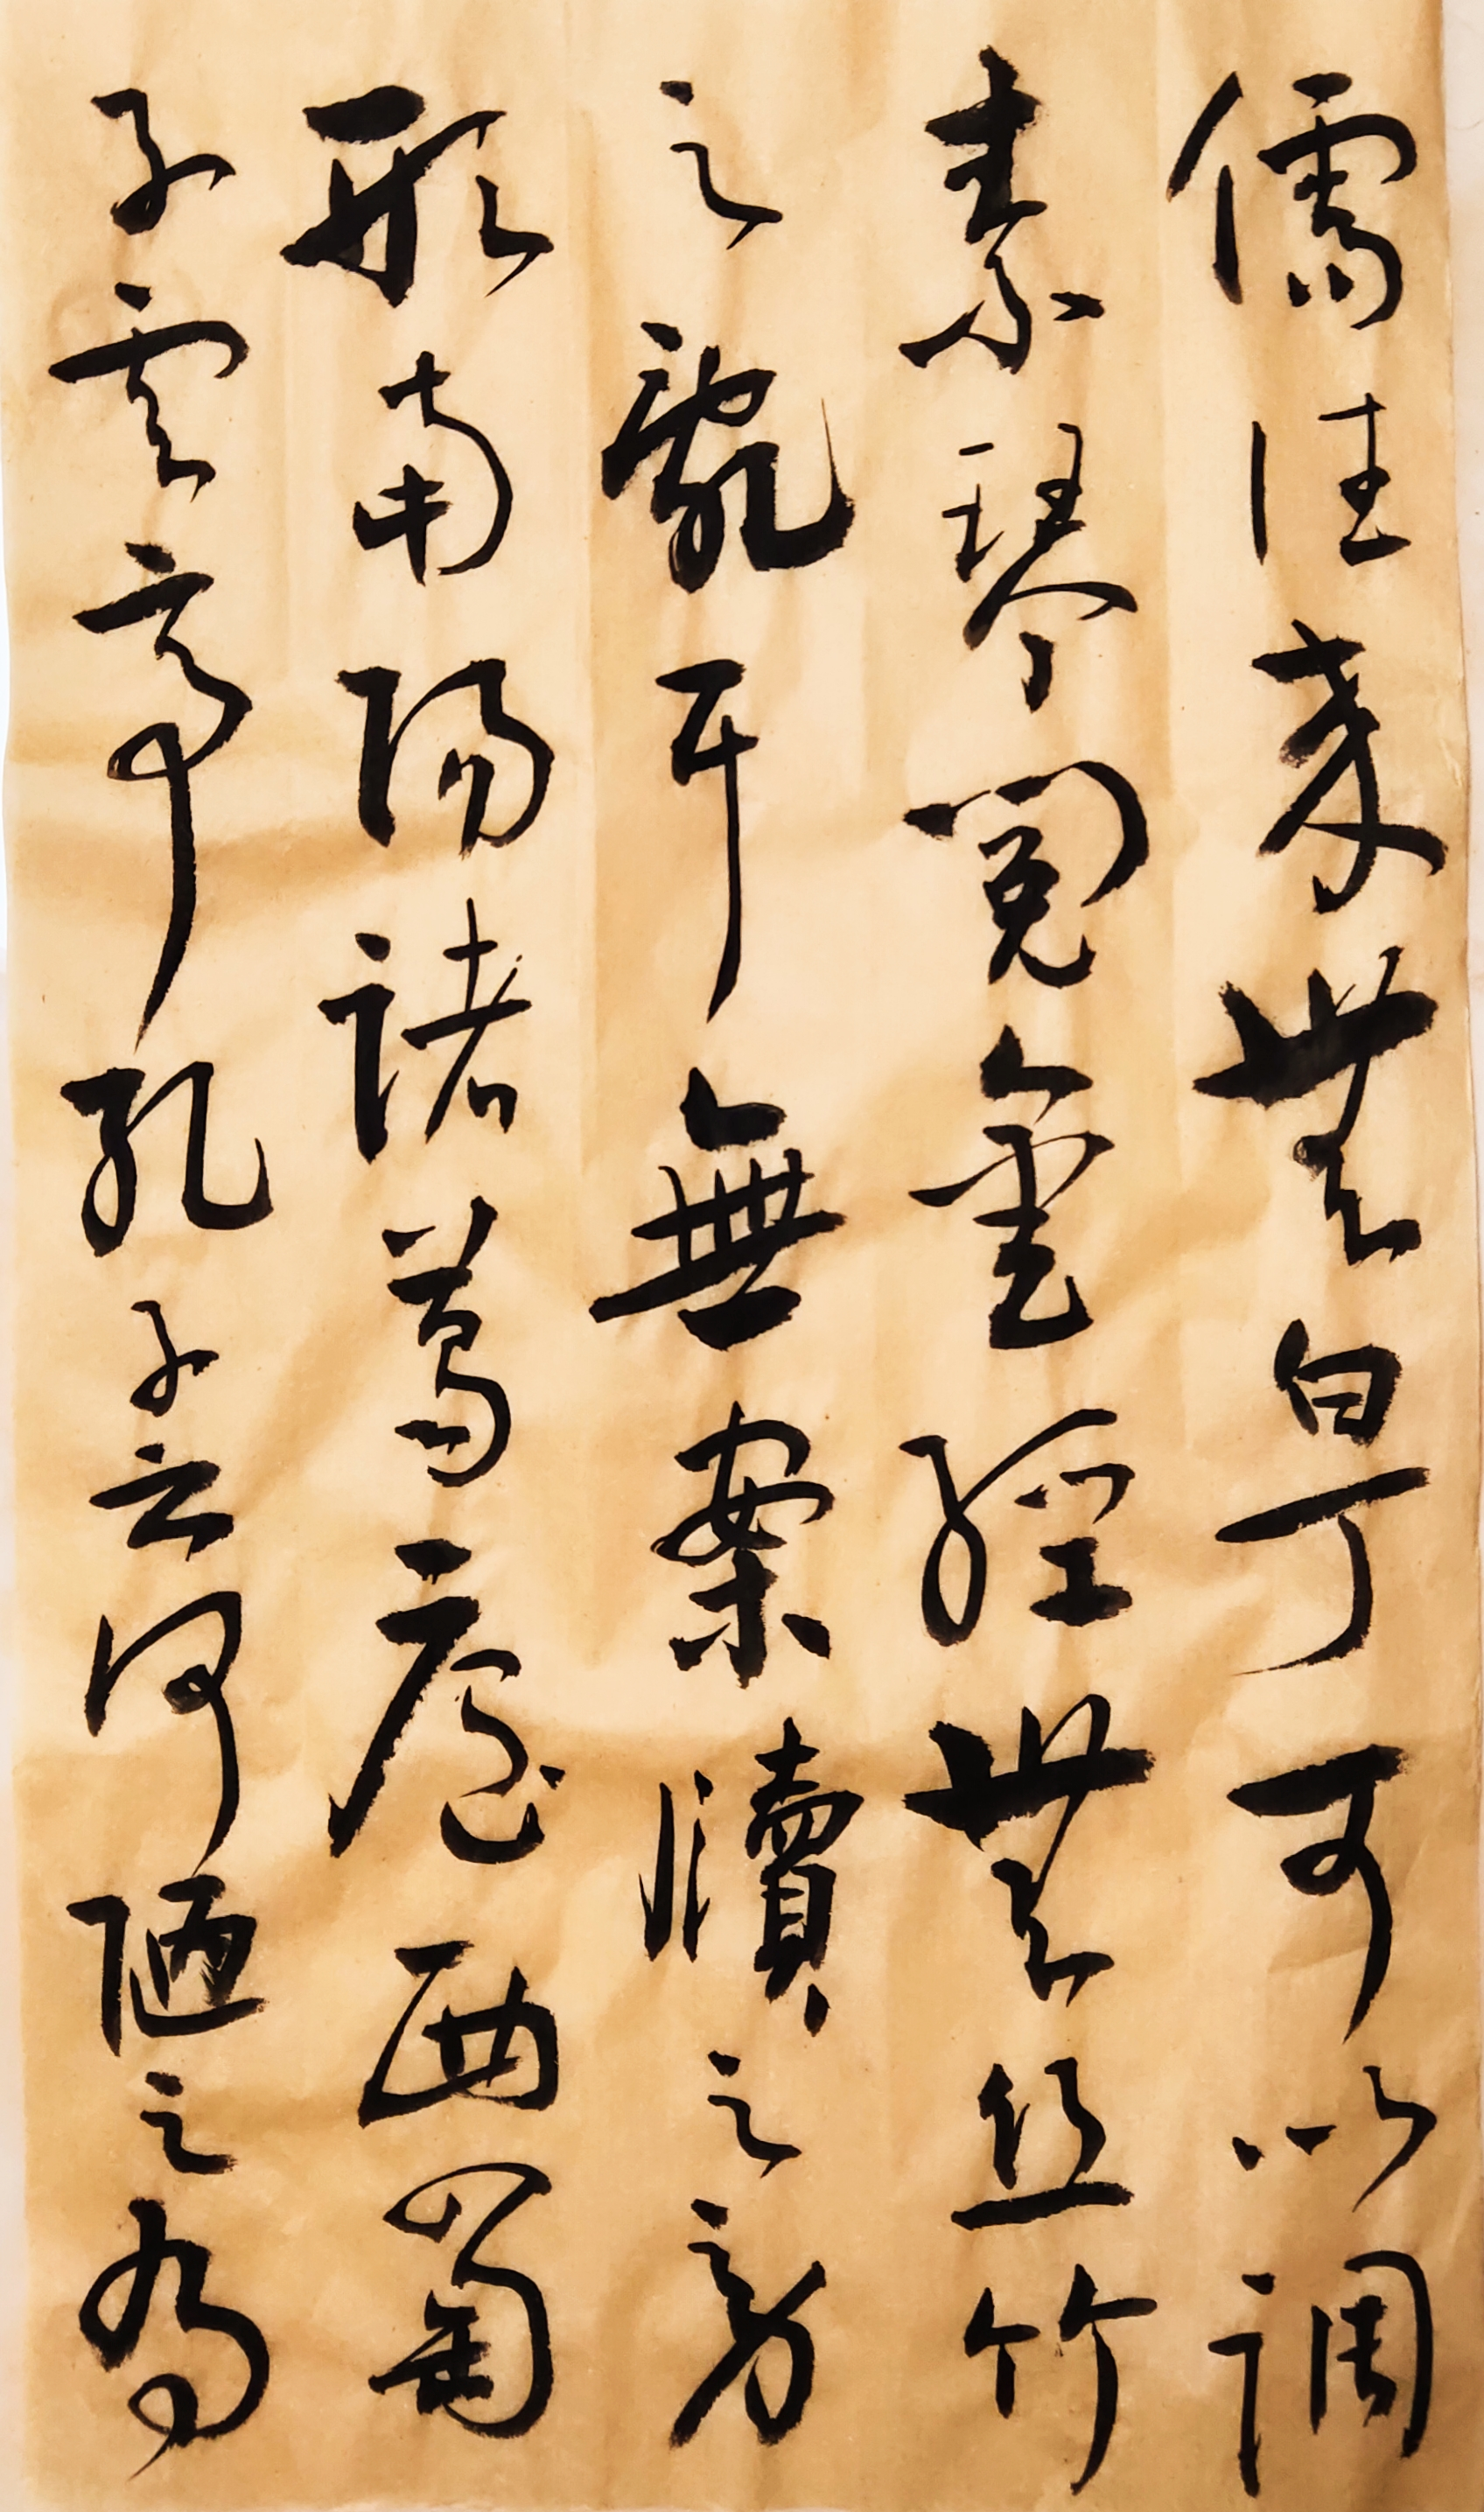 儒往来無白丁可以調
素琴閱金經無丝竹
之亂耳無案牘之劳
形南陽諸葛廬西蜀
子雲亭孔子云何陋之有